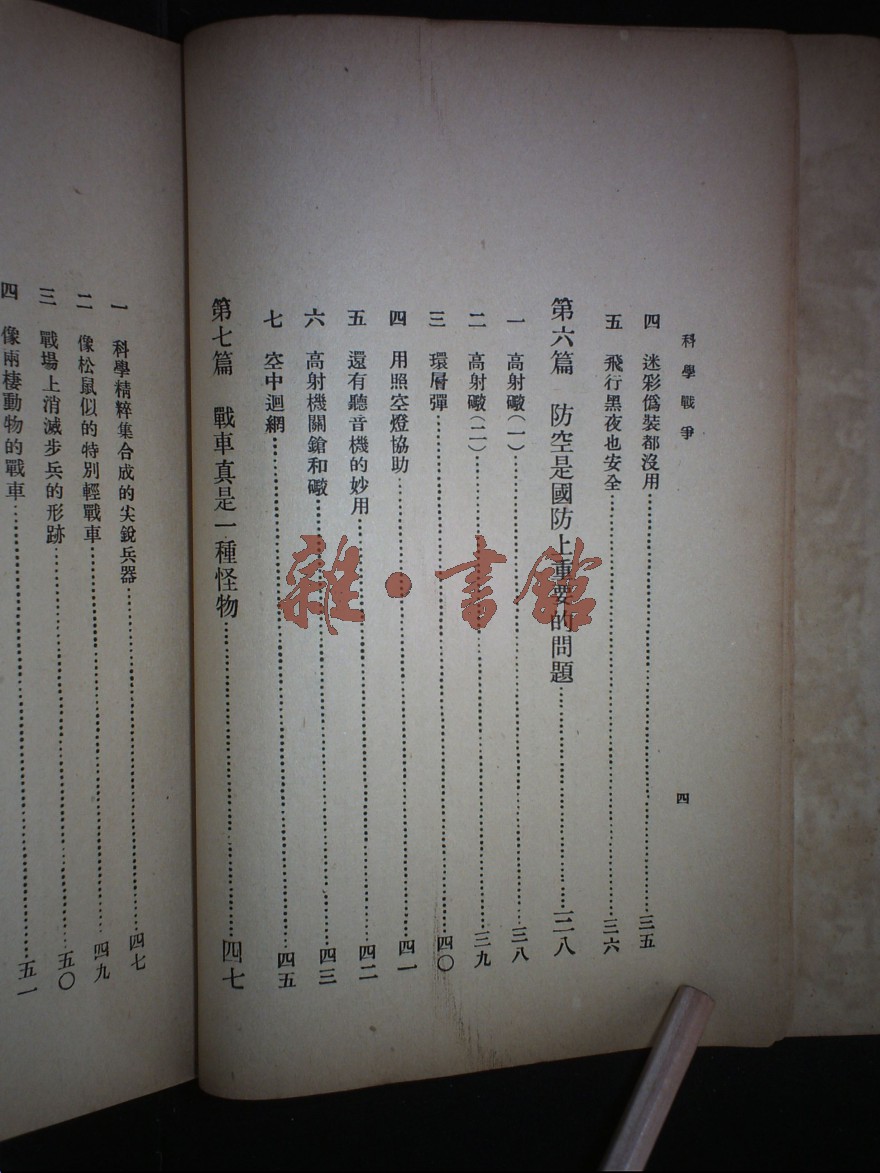 科學戰爭
四
四 迷彩僞裝都沒用……三五
五 飛行黑夜也安全……三六
第六篇 防空是國防上重要的問題……三八
一 高射礮(一)……三八
二 高射礮(二)……三九
三 環層彈……四〇
四 用照空燈協助……四一
五 還有聽音機的妙用……四二
六 高射機關鎗和礮……四三
七 空中迴網……四五
第七篇 戰車真是一種怪物……四七
一 科學精粹集合成的尖銳兵器……四七
二 像松鼠似的特別輕戰車……四九
三 戰場上消滅步兵的形跡……五〇
四 像兩棲動物的戰車……五一
雜·書館